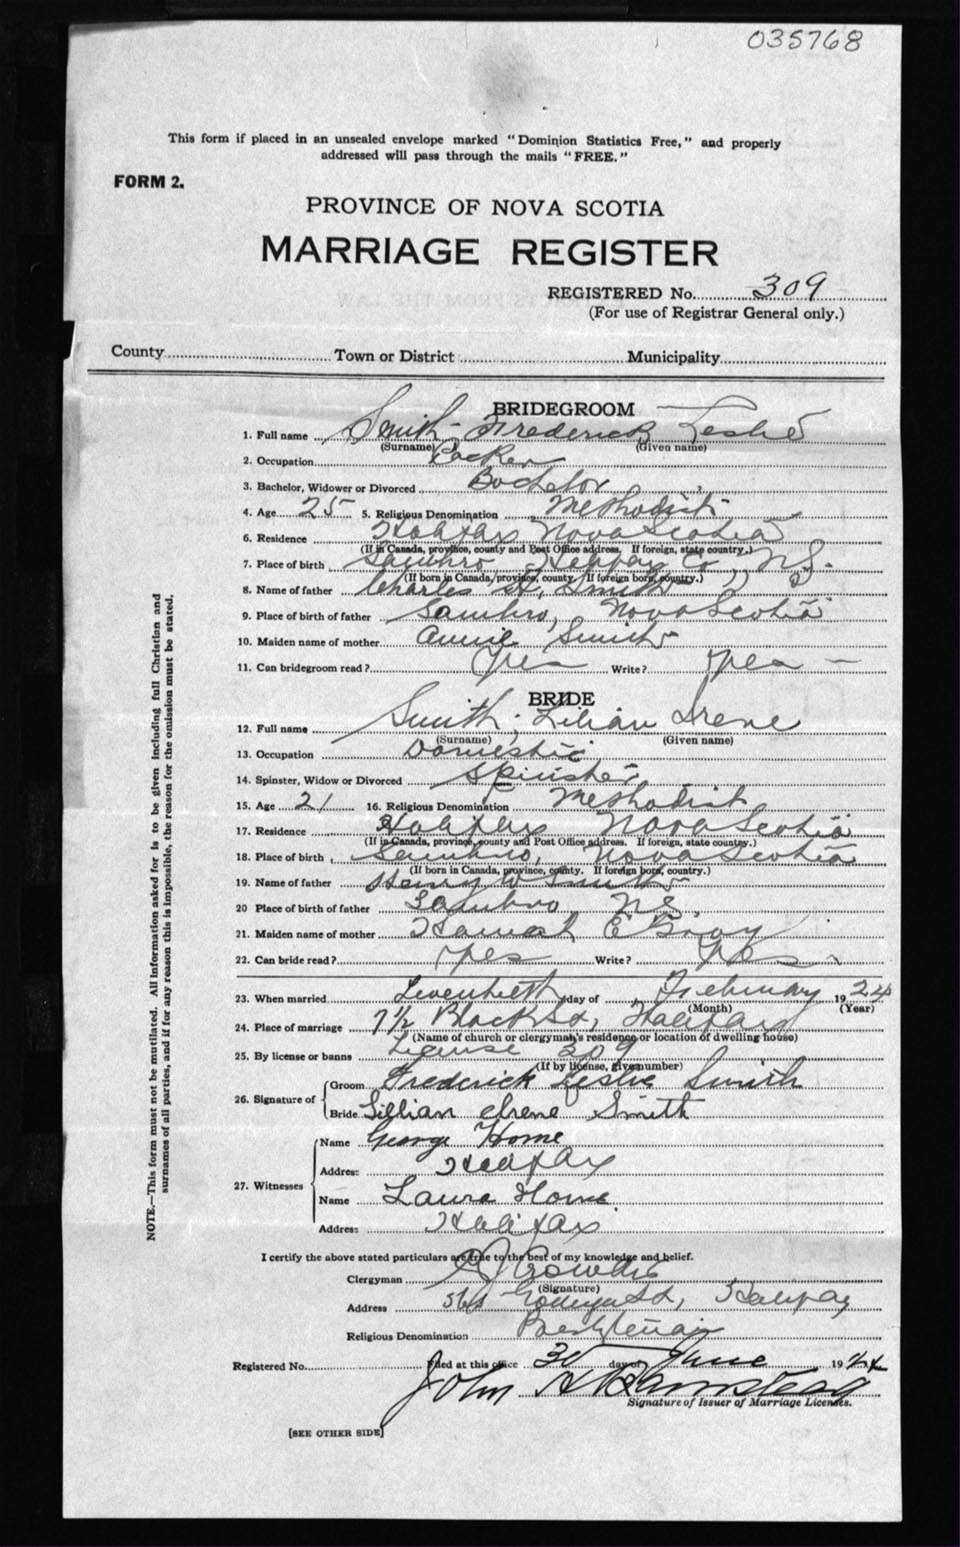 035768
This form if placed in an unsealed envelope marked "Dominion Statistics Free," and properly
addressed will pass through the mails "FREE."
FORM 2.
PROVINCE OF NOVA SCOTIA
MARRIAGE REGISTER
REGISTERED No. 309
(For use of Registrar General only.)
County Town or District Municipality
BRIDEGROOM
1. Full name Smith - Frederick Leslie
(Surname) (Given name)
2. Occupation
3. Bachelor, Widower or Divorced Bachelor
4. Age 25 5. Religious Denomination Methodist
6. Residence Halifax Nova Scotia
(If in Canada, province, county and Post Office address. If foreign, state country.)
7. Place of birth Sambro Halifax Co, N.S.
(If born in Canada, province, county. If foreign born, country.)
8. Name of father Charles Smith
9. Place of birth of father Sambro, Nova Scotia
10. Maiden name of mother Annie Smith
11. Can bridegroom read? Yes Write? Yes
BRIDE
12. Full name Smith - Lilian Irene
(Surname) (Given name)
13. Occupation Domestic
14. Spinster, Widow or Divorced Spinster
15. Age 21 16. Religious Denomination Methodist
17. Residence Halifax Nova Scotia
(If in Canada, province, county and Post Office address. If foreign, state country.)
18. Place of birth Sambro, Nova Scotia
(If born in Canada, province, county. If foreign born, country.)
19. Name of father Henry W Smith
20 Place of birth of father Sambro N.S.
21. Maiden name of mother Hannah E Gray
22. Can bride read? Yes Write? Yes
23. When married day of February 1924
(Month) (Year)
24. Place of marriage 7½ Black St, Halifax
(Name of church or clergyman's residence or location of dwelling house)
25. By license or banns License 309
(If by license, give number)
26. Signature of
Groom Frederick Leslie Smith
Bride Lillian Irene Smith
27. Witnesses
Name George Horne
Address Halifax
Name Laura Horne
Address Halifax
I certify the above stated particulars are true to the best of my knowledge and belief.
Clergyman
(Signature)
Address St, Halifax
Religious Denomination Presbyterian
Registered No. Filed at this office 30 day of June 1924
John
Signature of Issuer of Marriage Licenses.
[SEE OTHER SIDE]
NOTE.—This form must not be mutilated. All information asked for is to be given including full Christian and
surnames of all parties, and if for any reason this is impossible, the reason for the omission must be stated.